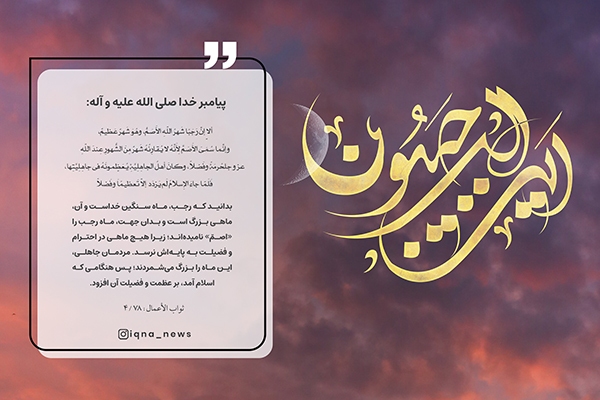 این الرجبیون
پیامبر خدا صلی الله علیه و آله:
ألا إنَّ رَجَبًا شَهرُ اللّهِ الأَصَمُّ، وهُوَ شَهرٌ عَظيمٌ،
وإنَّما سُمِّيَ الأَصَمَّ لِأَنَّهُ لا يُقارِنُهُ شَهرٌ مِنَ الشُّهورِ عِندَ اللّهِ
عَزَّ و جَلَّ حُرمَةً وفَضلاً، وكانَ أهلُ الجاهِلِيَّةِ يُعَظِّمونَهُ في جاهِلِيَّتِها،
فَلَمّا جاءَ الإِسلامُ لَم يَزدَد إلاّ تَعظيمًا وفَضلاً
بدانید که رجب، ماه سنگین خداست و آن،
ماهی بزرگ است و بدان جهت، ماه رجب را
«اصمّ» نامیده‌اند؛ زیرا هیچ ماهی در احترام
و فضیلت به پایه‌اش نرسد. مردمان جاهلی،
این ماه را بزرگ می‌شمردند؛ پس هنگامی که
اسلام آمد، بر عظمت و فضیلت آن افزود.
ثواب الأعمال : ۷۸ / ۴
iqna_news